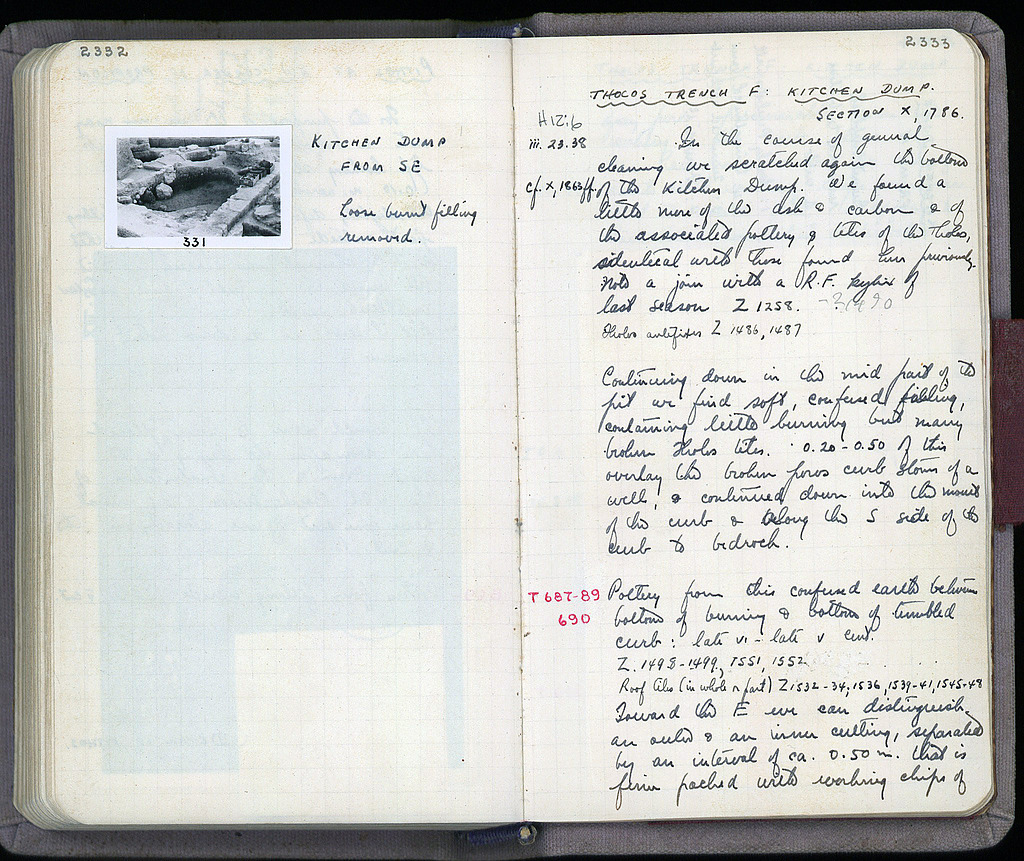 2332
KITCHEN DUMP
FROM SE
Loose burnt filling
removed.
331
2333
THOLOS TRENCH F: KITCHEN DUMP.
SECTION X, 1786.
H12:6
iii. 23.38
cf. X, 1863ff.
In the course of general
cleaning we scratched again the bottom
of the Kitchen Dump. We found a
little more of the ash & carbon & of
the associated pottery & tiles of the Tholos,
identical with those found here previously.
Note a join with a R.F. kylix of
last season Z 1258.
Tholos antefixes Z 1486, 1487
Continuing down in the mid part of the
pit we find soft, confused filling,
containing little burning but many
broken Tholos tiles. 0.20-0.50 of this
overlay the broken poros curb stones of a
well, & continued down into the mouth
of the curb & along the S side of the
curb to bedrock.
T 687-89
690
Pottery from this confused earth between
bottom of burning & bottom of tumbled
curb: late vi - late v cent.
Z. 1498-1499, 1551, 1552
Roof tiles (in whole or part) Z 1532-34, 1536, 1539-41, 1545-48
Toward the E we can distinguish
an outer & an inner cutting, separated
by an interval of ca. 0.50 m. that is
firm packed with working chips of